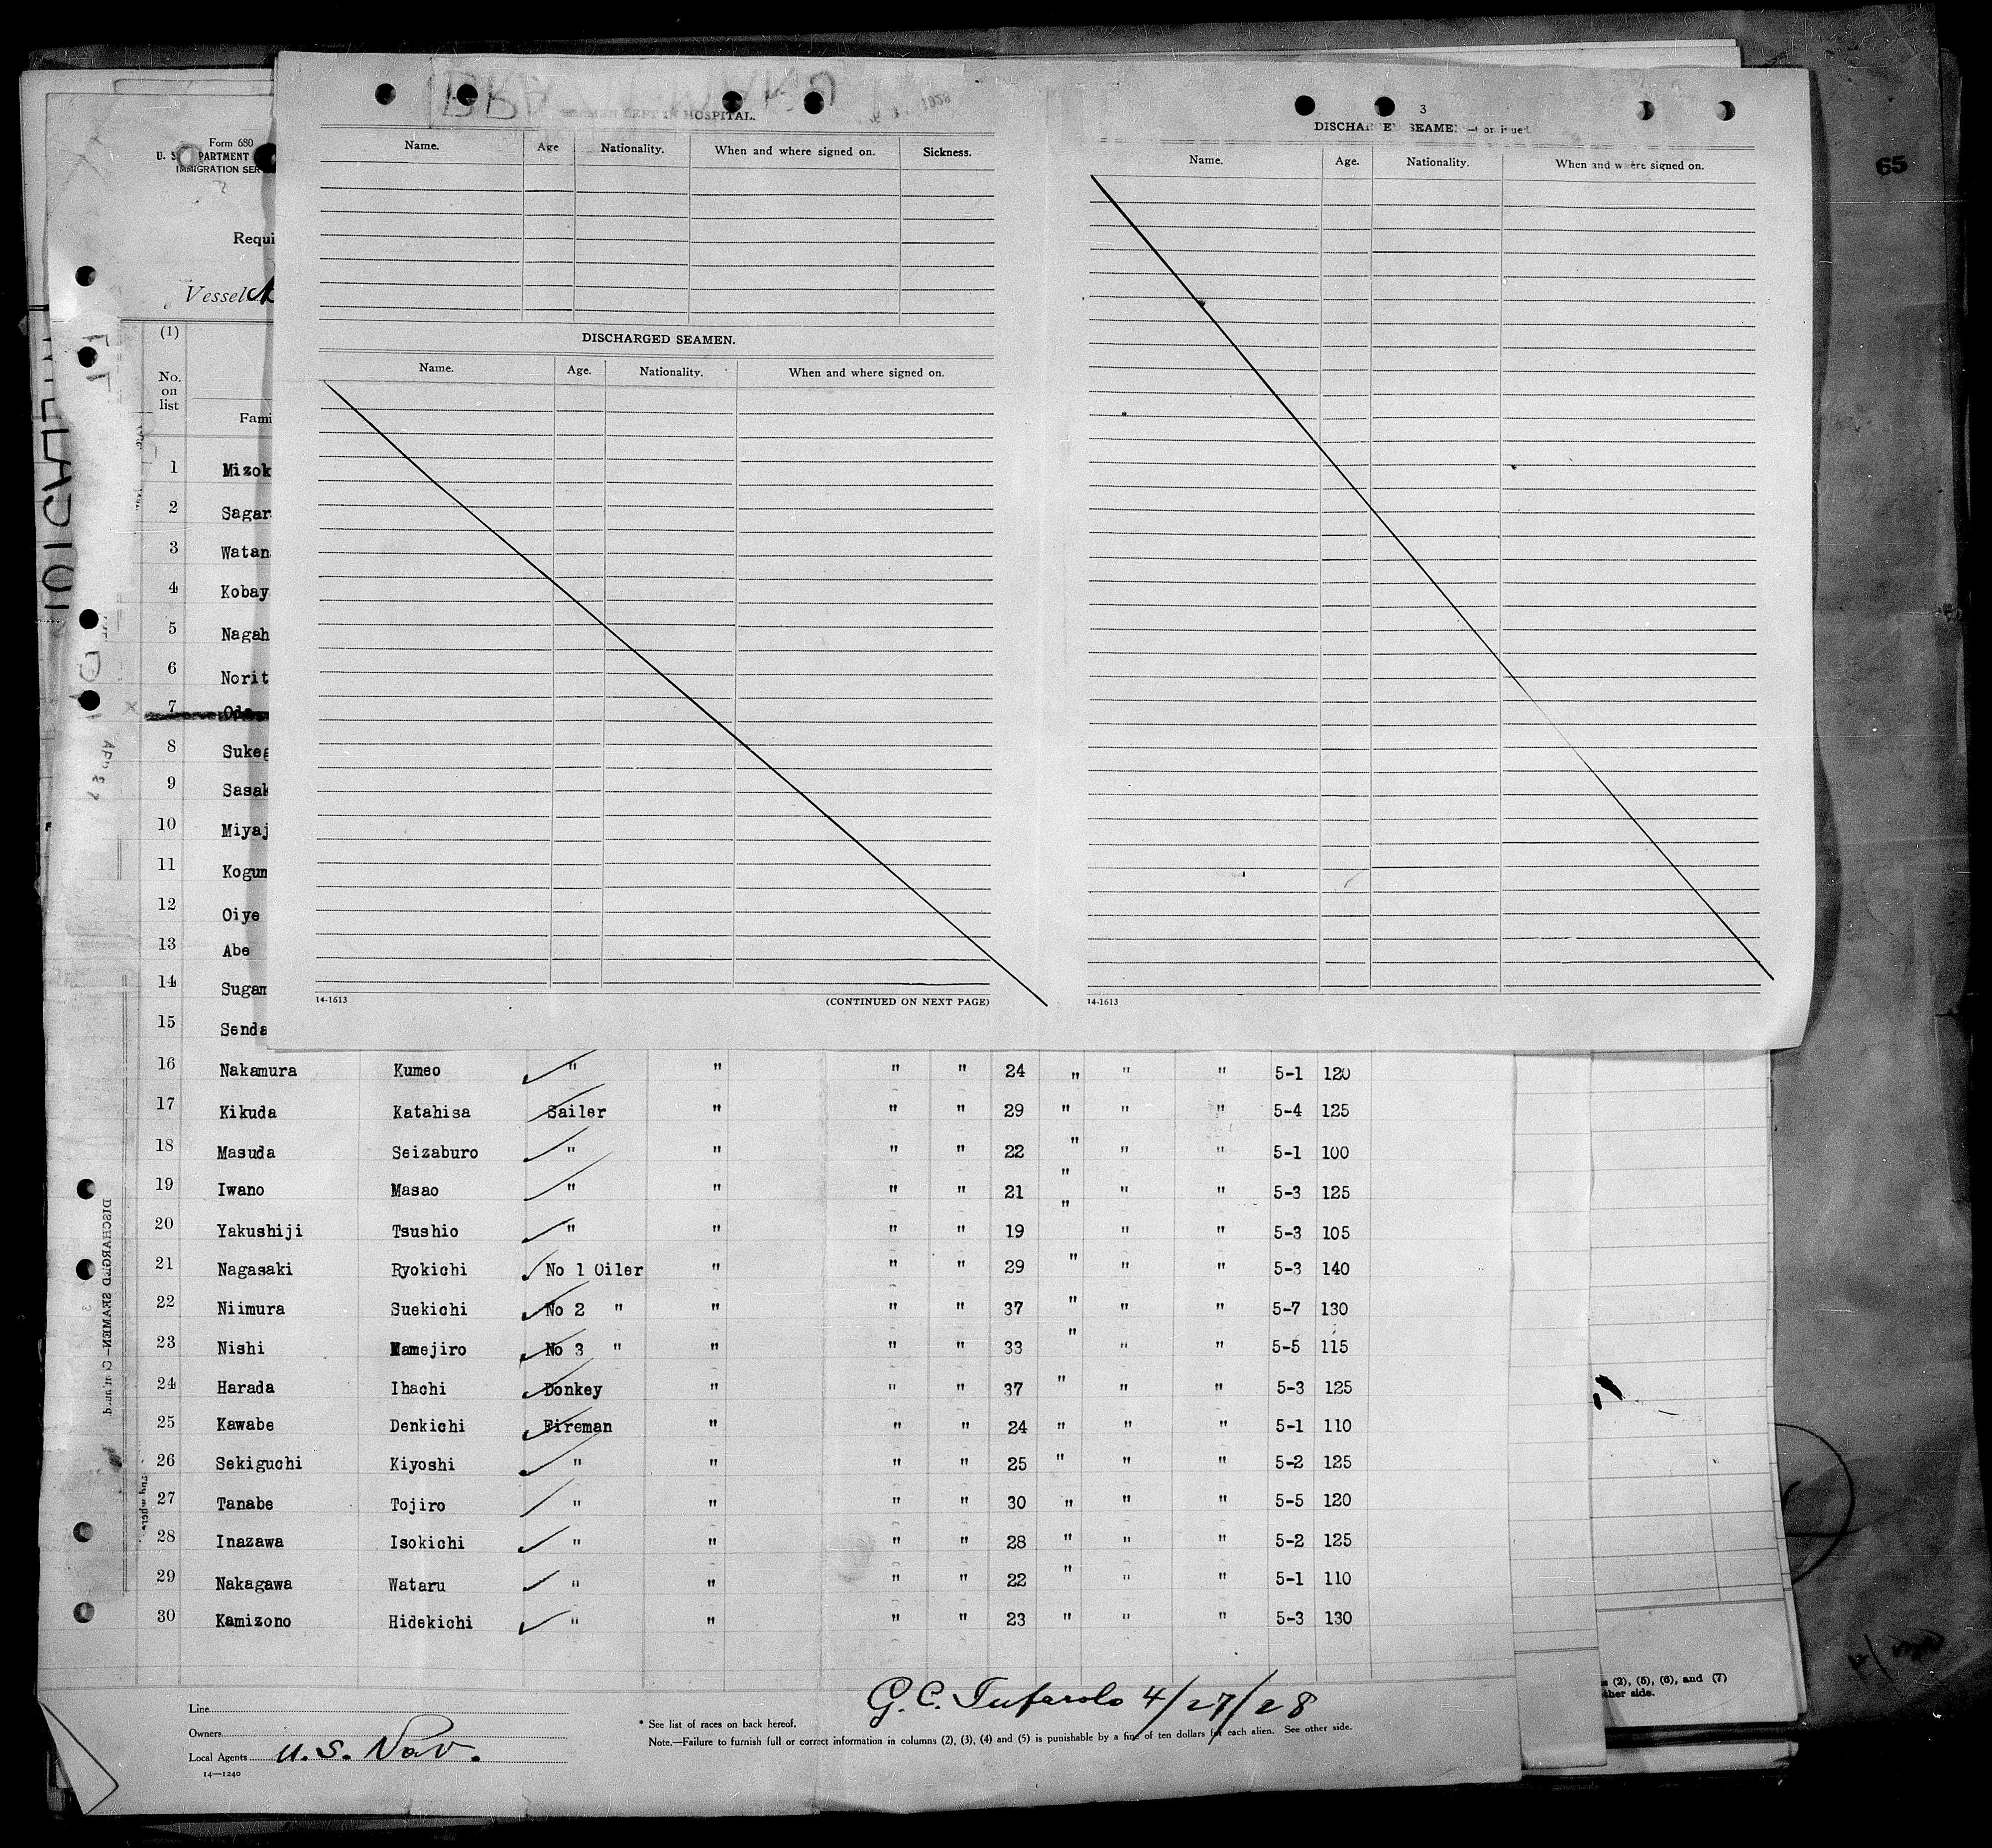 HOSPITAL.
Name. Age Nationality. When and where signed on. Sickness.
DISCHARGED SEAMEN.
Name. Age. Nationality. When and where signed on.
14-1613 (CONTINUED ON NEXT PAGE)
3
Name. Age. Nationality. When and where signed on.
14-1613
65
Form 680
U. S.
IMMIGRATION SER
Requi
Vessel
(1)
No. on list
Fami
1 Mizok
2 Sagar
3 Watan
4 Kobay
5 Nagah
6 Norit
7
8 Sukeg
9 Sasak
10 Miyaj
11 Kogum
12 Oiye
13 Abe
14 Sugam
15 Senda
16 Nakamura Kumeo " " " " 24 " " " 5-1 120
17 Kikuda Katahisa Sailer " " " 29 " " " 5-4 125
18 Masuda Seizaburo " " " " 22 " " " 5-1 100
19 Iwano Masao " " " " 21 " " " 5-3 125
20 Yakushiji Tsushio " " " " 19 " " " 5-3 105
21 Nagasaki Ryokichi No 1 Oiler " " " 29 " " " 5-3 140
22 Niimura Suekichi No 2 " " " " 37 " " " 5-7 130
23 Nishi Mamejiro No 3 " " " " 33 " " " 5-5 115
24 Harada Ihachi Donkey " " " 37 " " " 5-3 125
25 Kawabe Denkichi Fireman " " " 24 " " " 5-1 110
26 Sekiguchi Kiyoshi " " " " 25 " " " 5-2 125
27 Tanabe Tojiro " " " " 30 " " " 5-5 120
28 Inazawa Isokichi " " " " 28 " " " 5-2 125
29 Nakagawa Wataru " " " " 22 " " " 5-1 110
30 Kamizono Hidekichi " " " " 23 " " " 5-3 130
G. C. Tufarolo 4/27/28
Line
Owners
Local Agents U.S. Nav.
14—1240
* See list of races on back hereof.
Note.—Failure to furnish full or correct information in columns (2), (3), (4) and (5) is punishable by a fine of ten dollars for each alien. See other side.
(2), (5), (6), and (7)
other side.